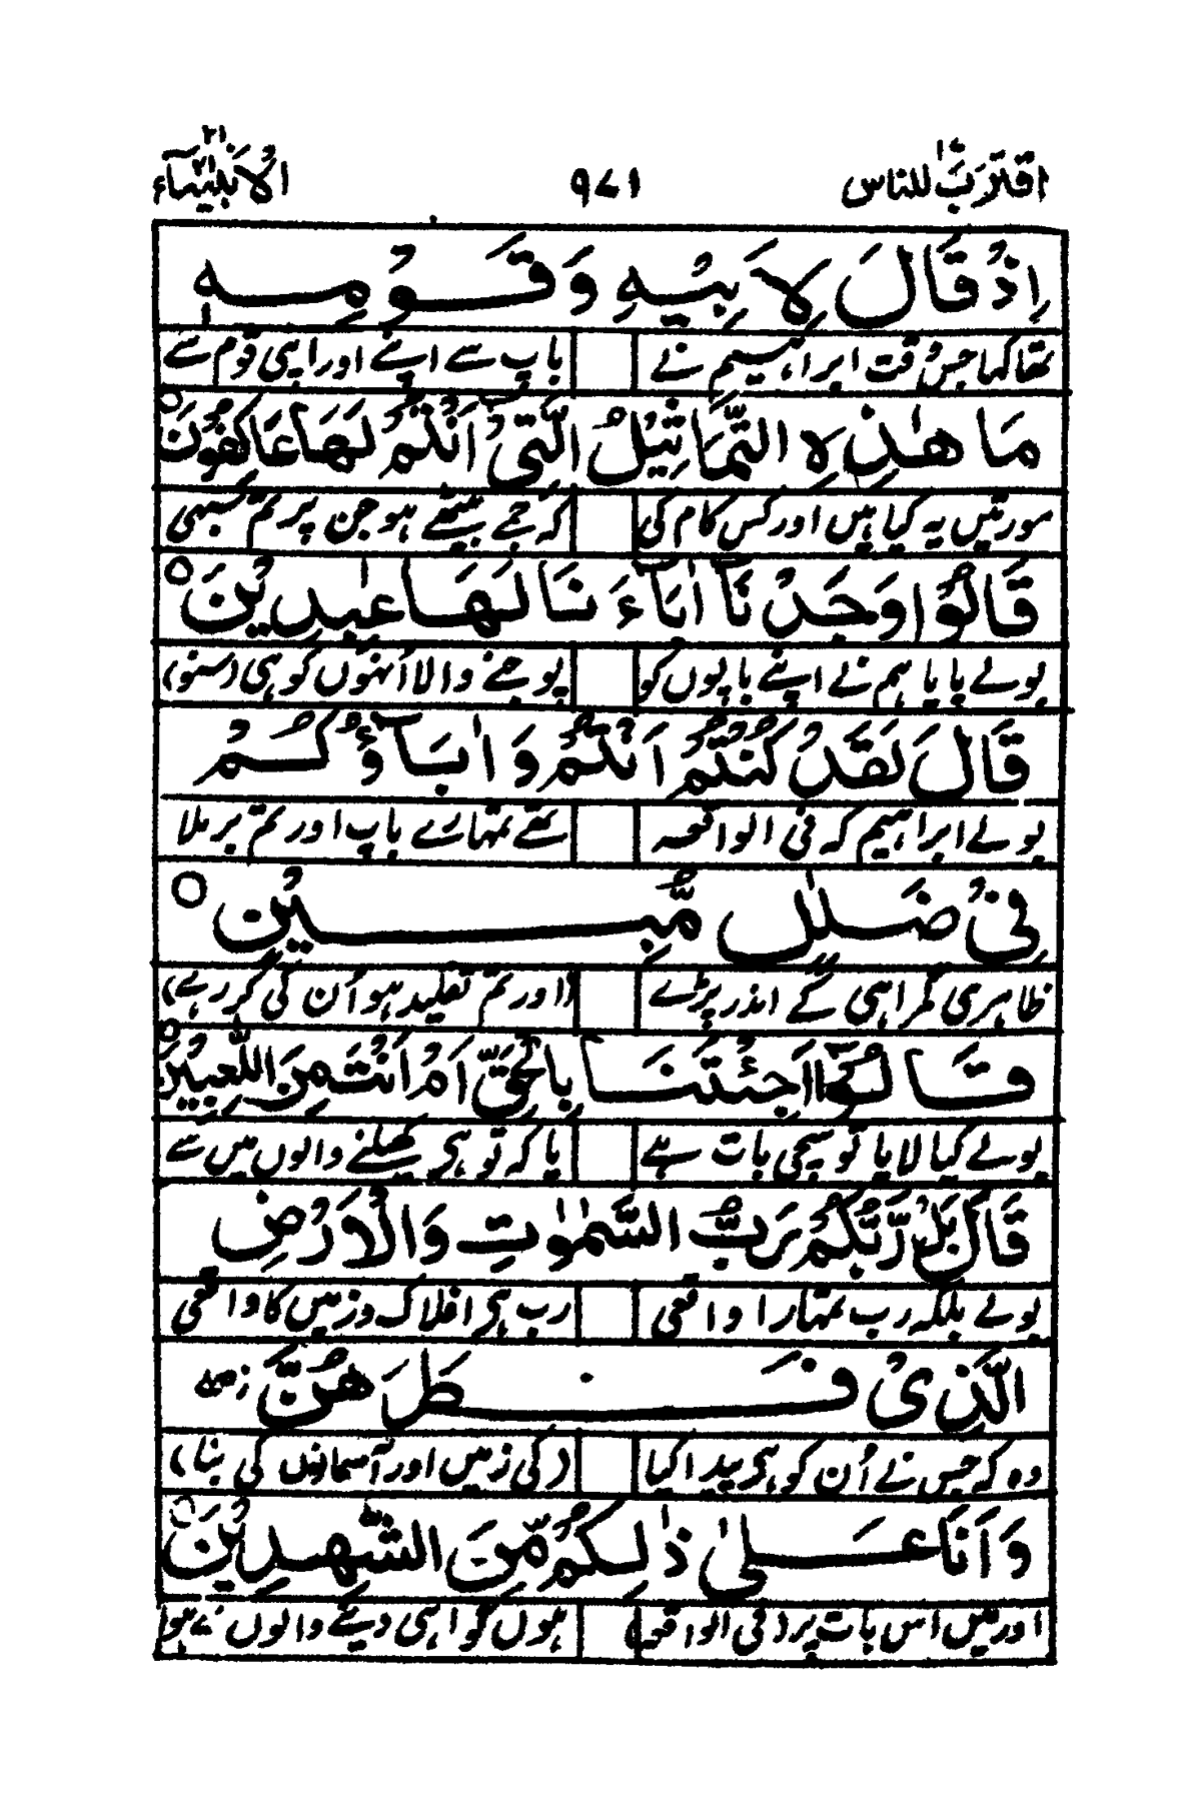 اقترب للناس ۱۷ ۹۷۱ الانبیآء ۲۱
اِذْ قَالَ لِاَبِیْهِ وَ قَوْمِهٖ
تھا کہا جس وقت ابراہیم نے باپ سے اپنے اور اپنی قوم سے
مَا هٰذِهِ التَّمَاثِیْلُ الَّتِیْۤ اَنْتُمْ لَهَا عَاكِفُوْنَ ○
مورتیں یہ کیا ہیں اور کس کام کی کہ جمے بیٹھے ہو جن پر تم سبھی
قَالُوْا وَجَدْنَاۤ اٰبَآءَنَا لَهَا عٰبِدِیْنَ ○
بولے پایا ہم نے اپنے باپوں کو پوجنے والا اُنہوں کو ہی (سنو)
قَالَ لَقَدْ كُنْتُمْ اَنْتُمْ وَ اٰبَآؤُكُمْ
بولے ابراہیم کہ فی الواقعہ تھے تمہارے باپ اور تم برملا
فِیْ ضَلٰلٍ مُّبِیْنٍ ○
ظاہری گمراہی کے اندر پڑے (اور تم تقلید ہو اُن کی کر رہے)
قَالُوْۤا اَجِئْتَنَا بِالْحَقِّ اَمْ اَنْتَ مِنَ اللّٰعِبِیْنَ ○
بولے کیا لایا تو سچی بات ہے یا کہ تو ہے کھیلنے والوں میں سے
قَالَ بَلْ رَّبُّكُمْ رَبُّ السَّمٰوٰتِ وَالْاَرْضِ
بولے بلکہ رب تمہارا واقعی رب ہے افلاک و زمیں کا واقعی
الَّذِیْ فَطَرَهُنَّ ۖ
وہ کہ جس نے اُن کو ہے پیدا کیا (کی زمیں اور آسمانوں کی بنا)
وَ اَنَا عَلٰی ذٰلِكُمْ مِّنَ الشّٰهِدِیْنَ ○
اور میں اس بات پر (فی الواقعہ) ہوں گواہی دینے والوں سے ہوا